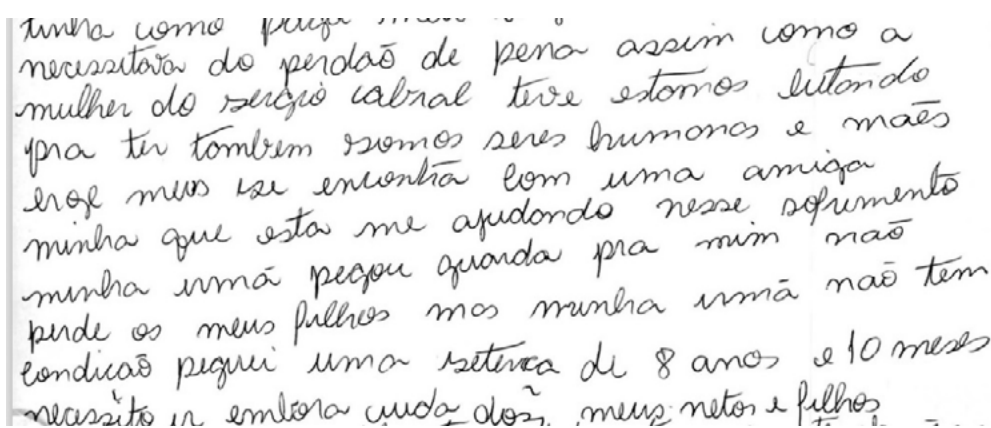 tinha como
necessitava do perdaõ de pena assim como a
mulher do sergio cabral teve estamos lutando
pra ter tambem somos seres humanos e maẽs
eroje meus se encontra com uma amiga
minha que esta me ajudando nesse sofrimento
minha irmã pegou guarda pra mim naõ
perde os meus filhos mas minha irmã naõ tem
condicaõ peguei uma setenca de 8 anos e 10 meses
necessito ir embora cuida dos meus netos e filhos